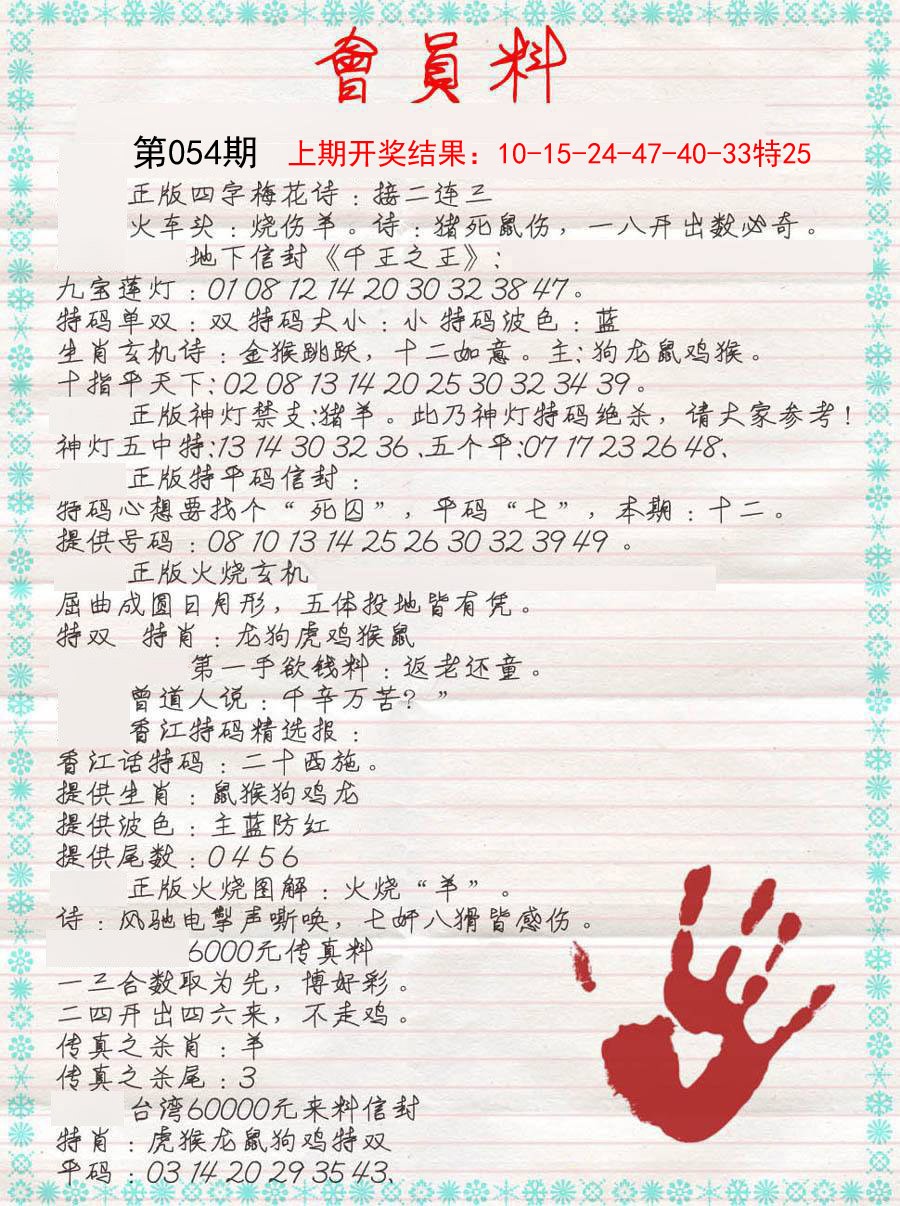 會員料
第054期 上期开奖结果：10-15-24-47-40-33特25
正版四字梅花诗：接二连三
火车头：烧伤羊。诗：猪死鼠伤，一八开出数必奇。
地下信封《千王之王》：
九宝莲灯：01 08 12 14 20 30 32 38 47。
特码单双：双 特码大小：小 特码波色：蓝
生肖玄机诗：金猴跳跃，十二如意。主：狗龙鼠鸡猴。
十指平天下：02 08 13 14 20 25 30 32 34 39。
正版神灯禁支：猪羊。此乃神灯特码绝杀，请大家参考！
神灯五中特：13 14 30 32 36、五个平：07 17 23 26 48、
正版特平码信封：
特码心想要找个“死囚”，平码“七”，本期：十二。
提供号码：08 10 13 14 25 26 30 32 39 49 。
正版火烧玄机
屈曲成圆日月形，五体投地皆有凭。
特双 特肖：龙狗虎鸡猴鼠
第一手欲钱料：返老还童。
曾道人说：千辛万苦？”
香江特码精选报：
香江话特码：二十西施。
提供生肖：鼠猴狗鸡龙
提供波色：主蓝防红
提供尾数：0 4 5 6
正版火烧图解：火烧“羊”。
诗：风驰电掣声嘶唤，七奸八猾皆感伤。
6000元传真料
一三合数取为先，博好彩。
二四开出四六来，不走鸡。
传真之杀肖：羊
传真之杀尾：3
台湾60000元来料信封
特肖：虎猴龙鼠狗鸡特双
平码：03 14 20 29 35 43、